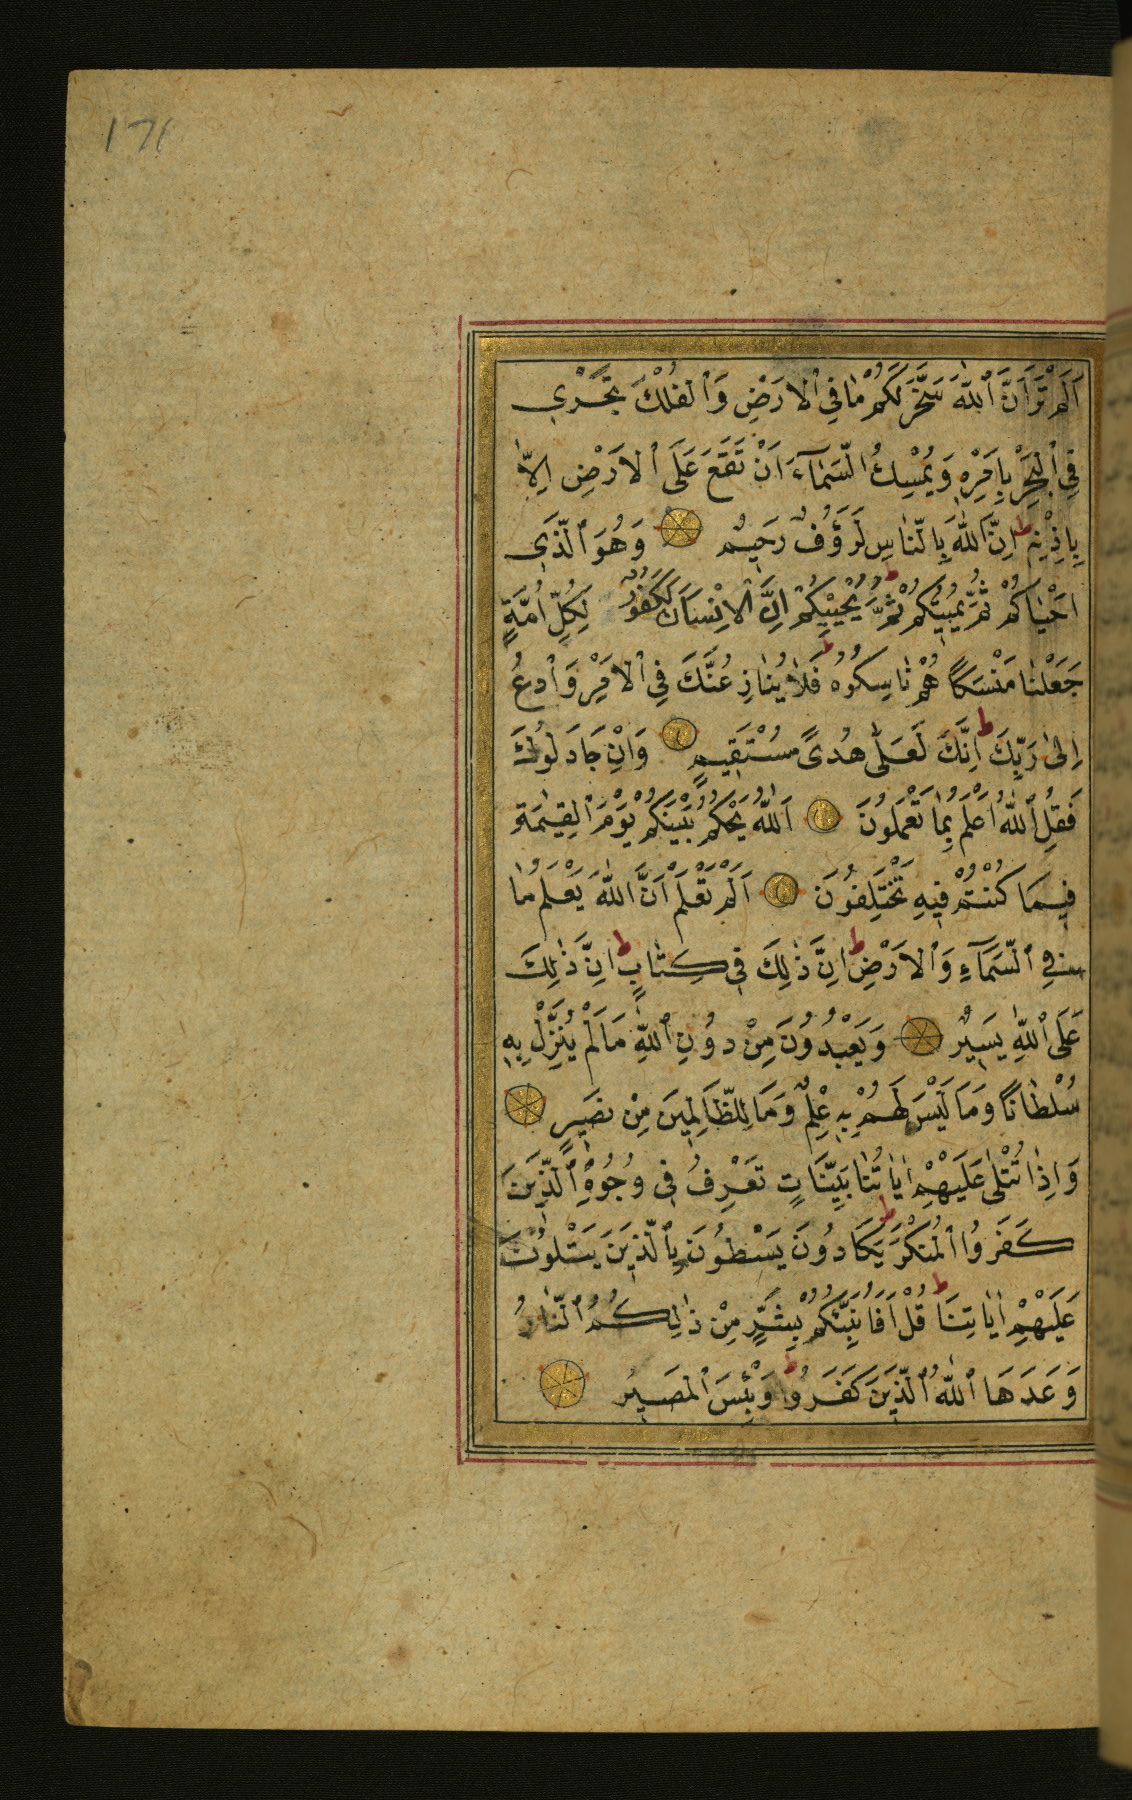 171
اَلَمْ تَرَ اَنَّ ٱللّٰهَ سَخَّرَ لَكُمْ مَا فِي ٱلْاَرْضِ وَٱلْفُلْكَ تَجْرِي
فِي ٱلْبَحْرِ بِاَمْرِهِ وَيُمْسِكُ ٱلسَّمَآءَ اَنْ تَقَعَ عَلَى ٱلْاَرْضِ اِلَّا
بِاِذْنِهِ ط اِنَّ ٱللّٰهَ بِالنَّاسِ لَرَؤُفٌ رَحِيمٌ وَهُوَ ٱلَّذِي
اَحْيَاكُمْ ثُمَّ يُمِيتُكُمْ ثُمَّ يُحْيِيكُمْ ط اِنَّ ٱلْاِنْسَانَ لَكَفُورٌ لِكُلِّ اُمَّةٍ
جَعَلْنَا مَنْسَكًا هُمْ نَاسِكُوهُ ط فَلَا يُنَازِعُنَّكَ فِي ٱلْاَمْرِ وَٱدْعُ
اِلٰى رَبِّكَ ط اِنَّكَ لَعَلٰى هُدًى مُسْتَقِيمٍ وَاِنْ جَادَلُوكَ
فَقُلِ ٱللّٰهُ اَعْلَمُ بِمَا تَعْمَلُونَ اَللّٰهُ يَحْكُمُ بَيْنَكُمْ يَوْمَ ٱلْقِيٰمَةِ
فِيمَا كُنْتُمْ فِيهِ تَخْتَلِفُونَ اَلَمْ تَعْلَمْ اَنَّ ٱللّٰهَ يَعْلَمُ مَا
فِي ٱلسَّمَآءِ وَٱلْاَرْضِ ط اِنَّ ذٰلِكَ فِي كِتَابٍ ط اِنَّ ذٰلِكَ
عَلَى ٱللّٰهِ يَسِيرٌ وَيَعْبُدُونَ مِنْ دُونِ ٱللّٰهِ مَا لَمْ يُنَزِّلْ بِهِ
سُلْطَانًا وَمَا لَيْسَ لَهُمْ بِهِ عِلْمٌ وَمَا لِلظَّالِمِينَ مِنْ نَصِيرٍ
وَاِذَا تُتْلٰى عَلَيْهِمْ اٰيَاتُنَا بَيِّنَاتٍ تَعْرِفُ فِي وُجُوهِ ٱلَّذِينَ
كَفَرُوا ٱلْمُنْكَرَ ط يَكَادُونَ يَسْطُونَ بِٱلَّذِينَ يَتْلُونَ
عَلَيْهِمْ اٰيَاتِنَا ط قُلْ اَفَاُنَبِّئُكُمْ بِشَرٍّ مِنْ ذٰلِكُمُ ٱلنَّارُ
وَعَدَهَا ٱللّٰهُ ٱلَّذِينَ كَفَرُوا ط وَبِئْسَ ٱلْمَصِيرُ